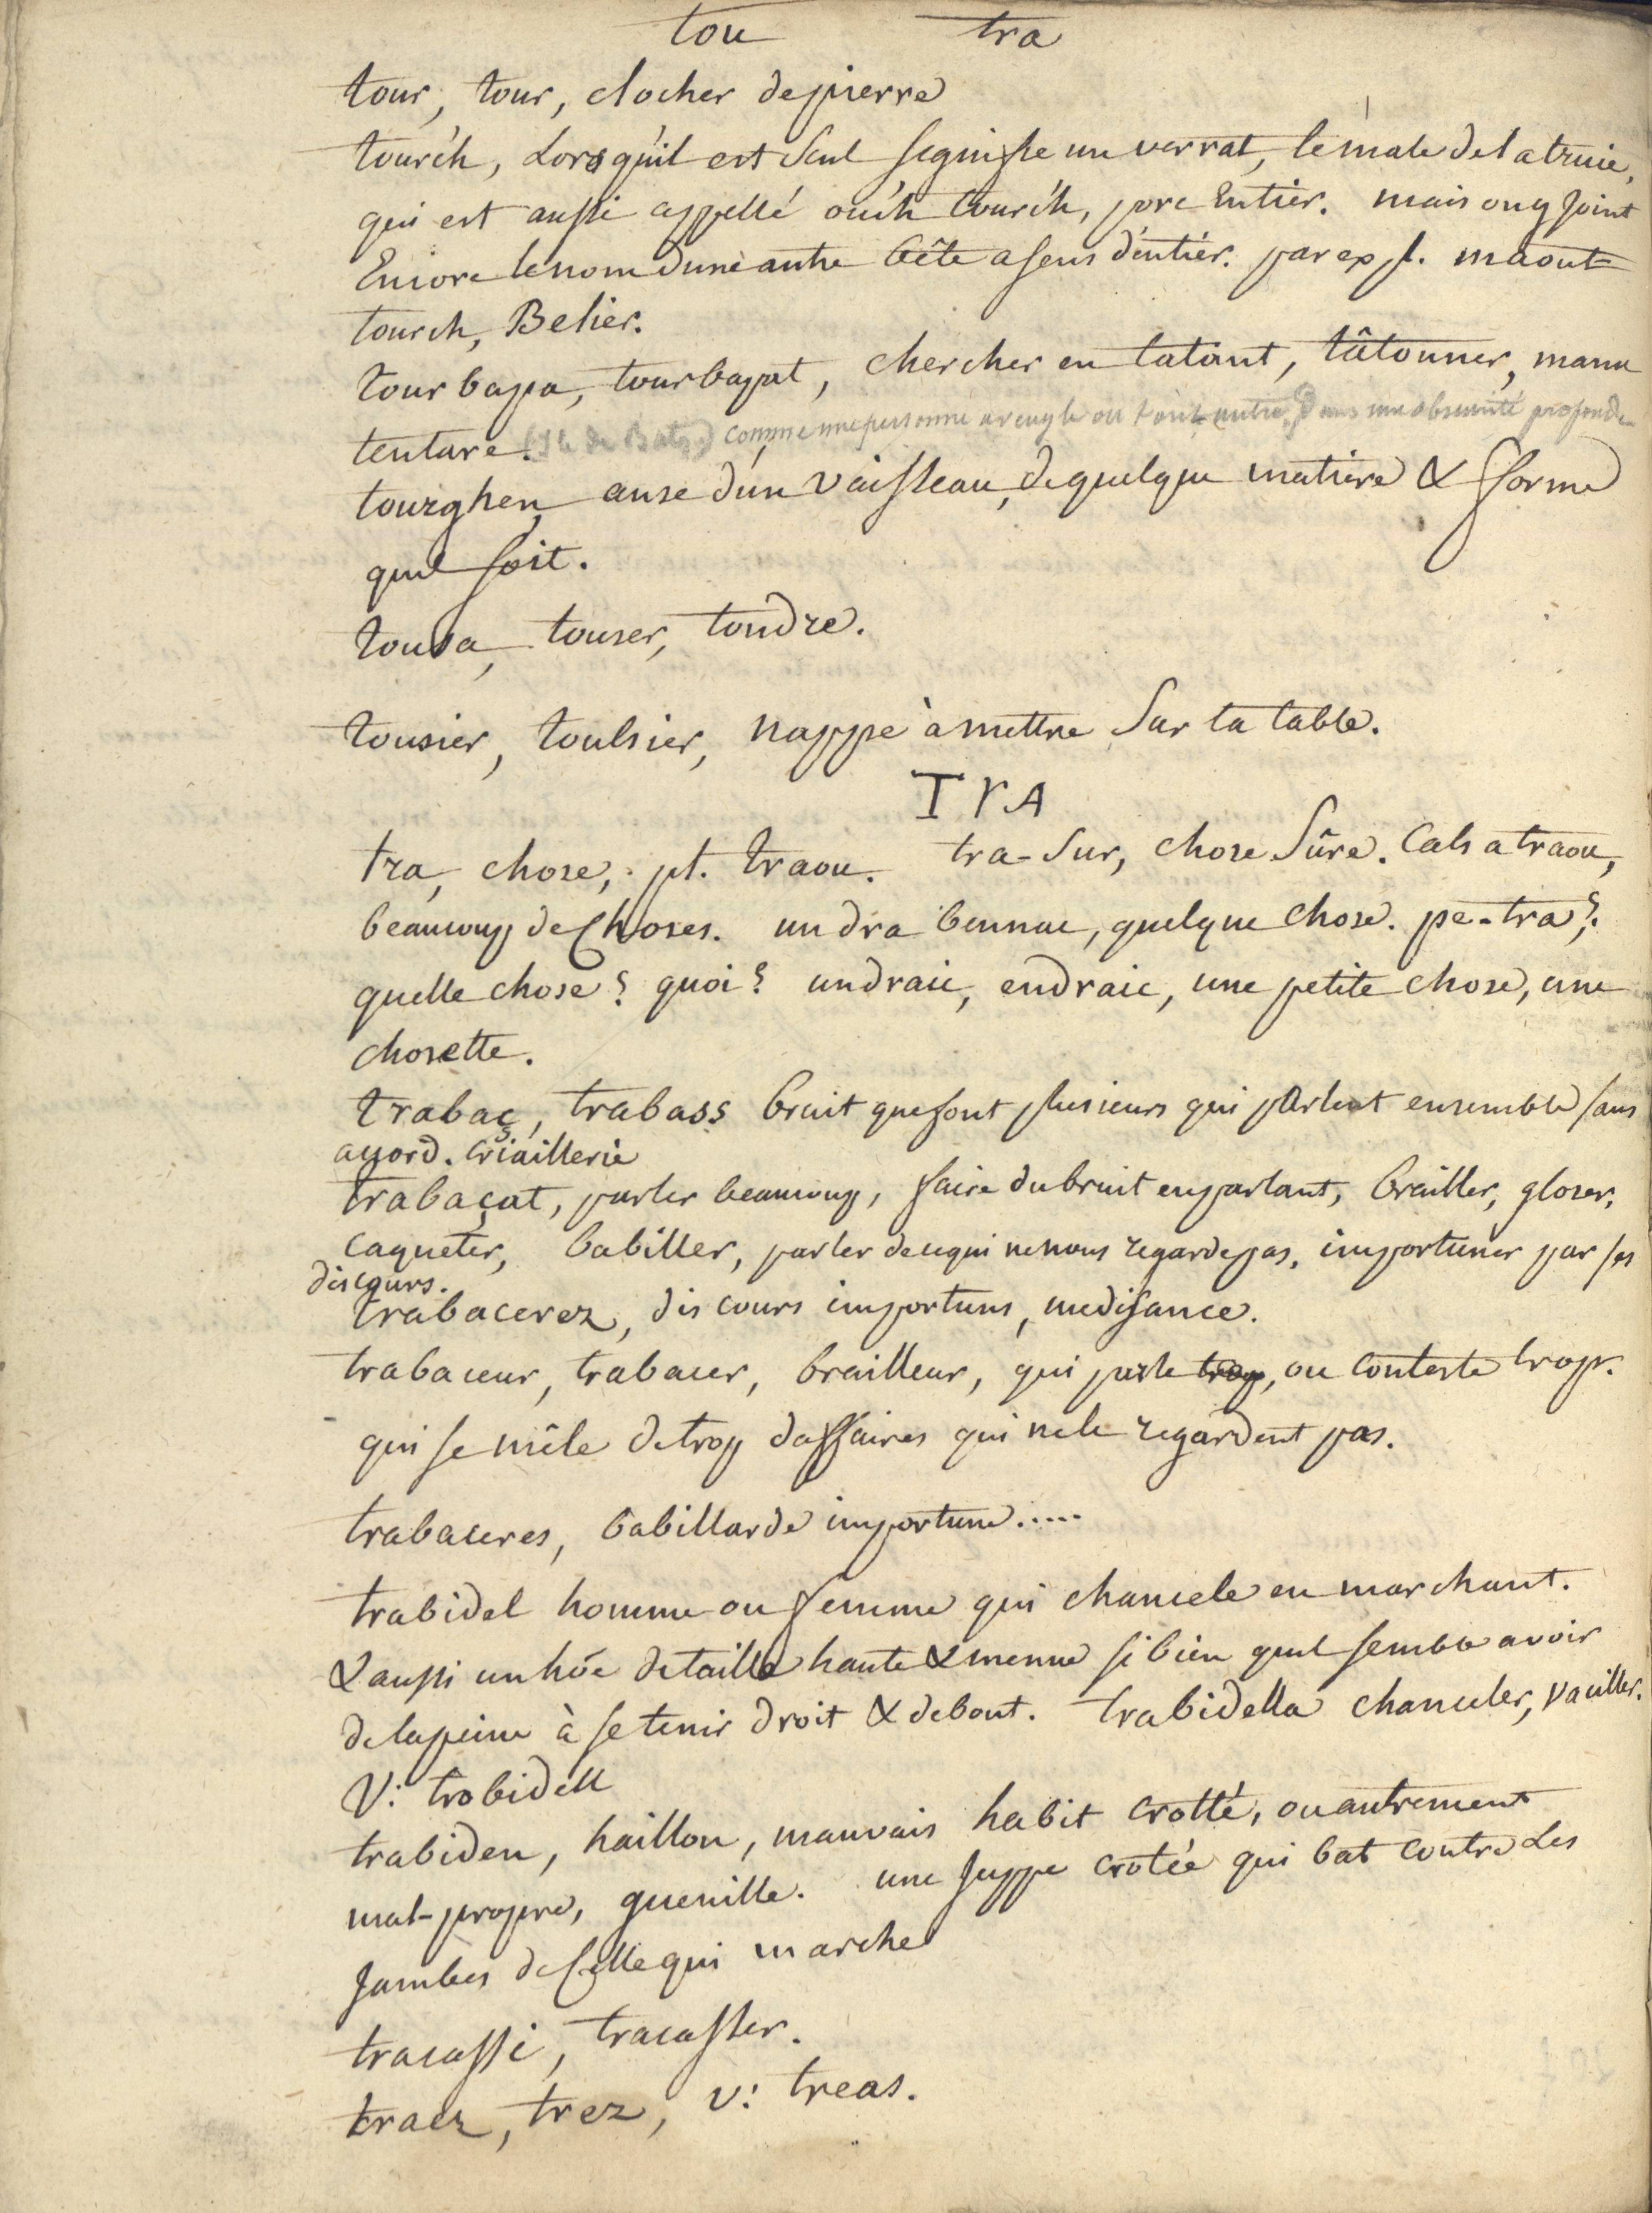 tou tra
tour, tour, clocher de pierre
tourc'h, Lorsqu'il est seul signifie un verrat, le male de la truie,
qui est aussi appellé ouc'h tourc'h, porc Entier. mais on y joint
Encore le nom d'une autre bête a sens d'entier. par expl. maout-
tourch, Belier.
tourbapa, tourbapat, chercher en tatant, tâtonner, manu
tentare. (Ile de Batz) comme une personne aveugle ou tout autre dans une obscurité profonde
tourghen, anse d'un vaisseau, de quelque matiere & forme
quil soit.
tousa, touser, tondre.
tousier, toulsier, nappe à mettre sur la table.
TrA
tra, chose, pl. traou. tra-sur, chose sûre. Cals a traou,
beaucoup de choses. un dra bennac, quelque chose. pe-tra?
quelle chose? quoi? undraic, endraic, une petite chose, une
chosette.
trabaç, trabass bruit que font plusieurs qui parlent ensemble sans
accord. criaillerie
trabaçat, parler beaucoup, faire du bruit en parlant, brailler, gloser,
caqueter, babiller, parler de ce qui ne nous regarde pas, importuner par ses
discours.
trabacerez, discours importuns, medisance.
trabaceur, trabacer, brailleur, qui parle trop, ou conteste trop.
qui se mêle de trop d'affaires qui ne le regardent pas.
trabaceres, babillarde importune.....
trabidel homme ou femme qui chancele en marchant.
& aussi un hôe de taille haute & menue si bien quil semble avoir
de la peine à se tenir droit & debout. trabidella chanceler, vaciller.
V: trobidell
trabiden, haillon, mauvais habit crotté, ou autrement
mal-propre, guenille. une juppe crotée qui bat contre Les
Jambes de Celle qui marche
tracassi, tracasser.
traez, trez, v: treas.